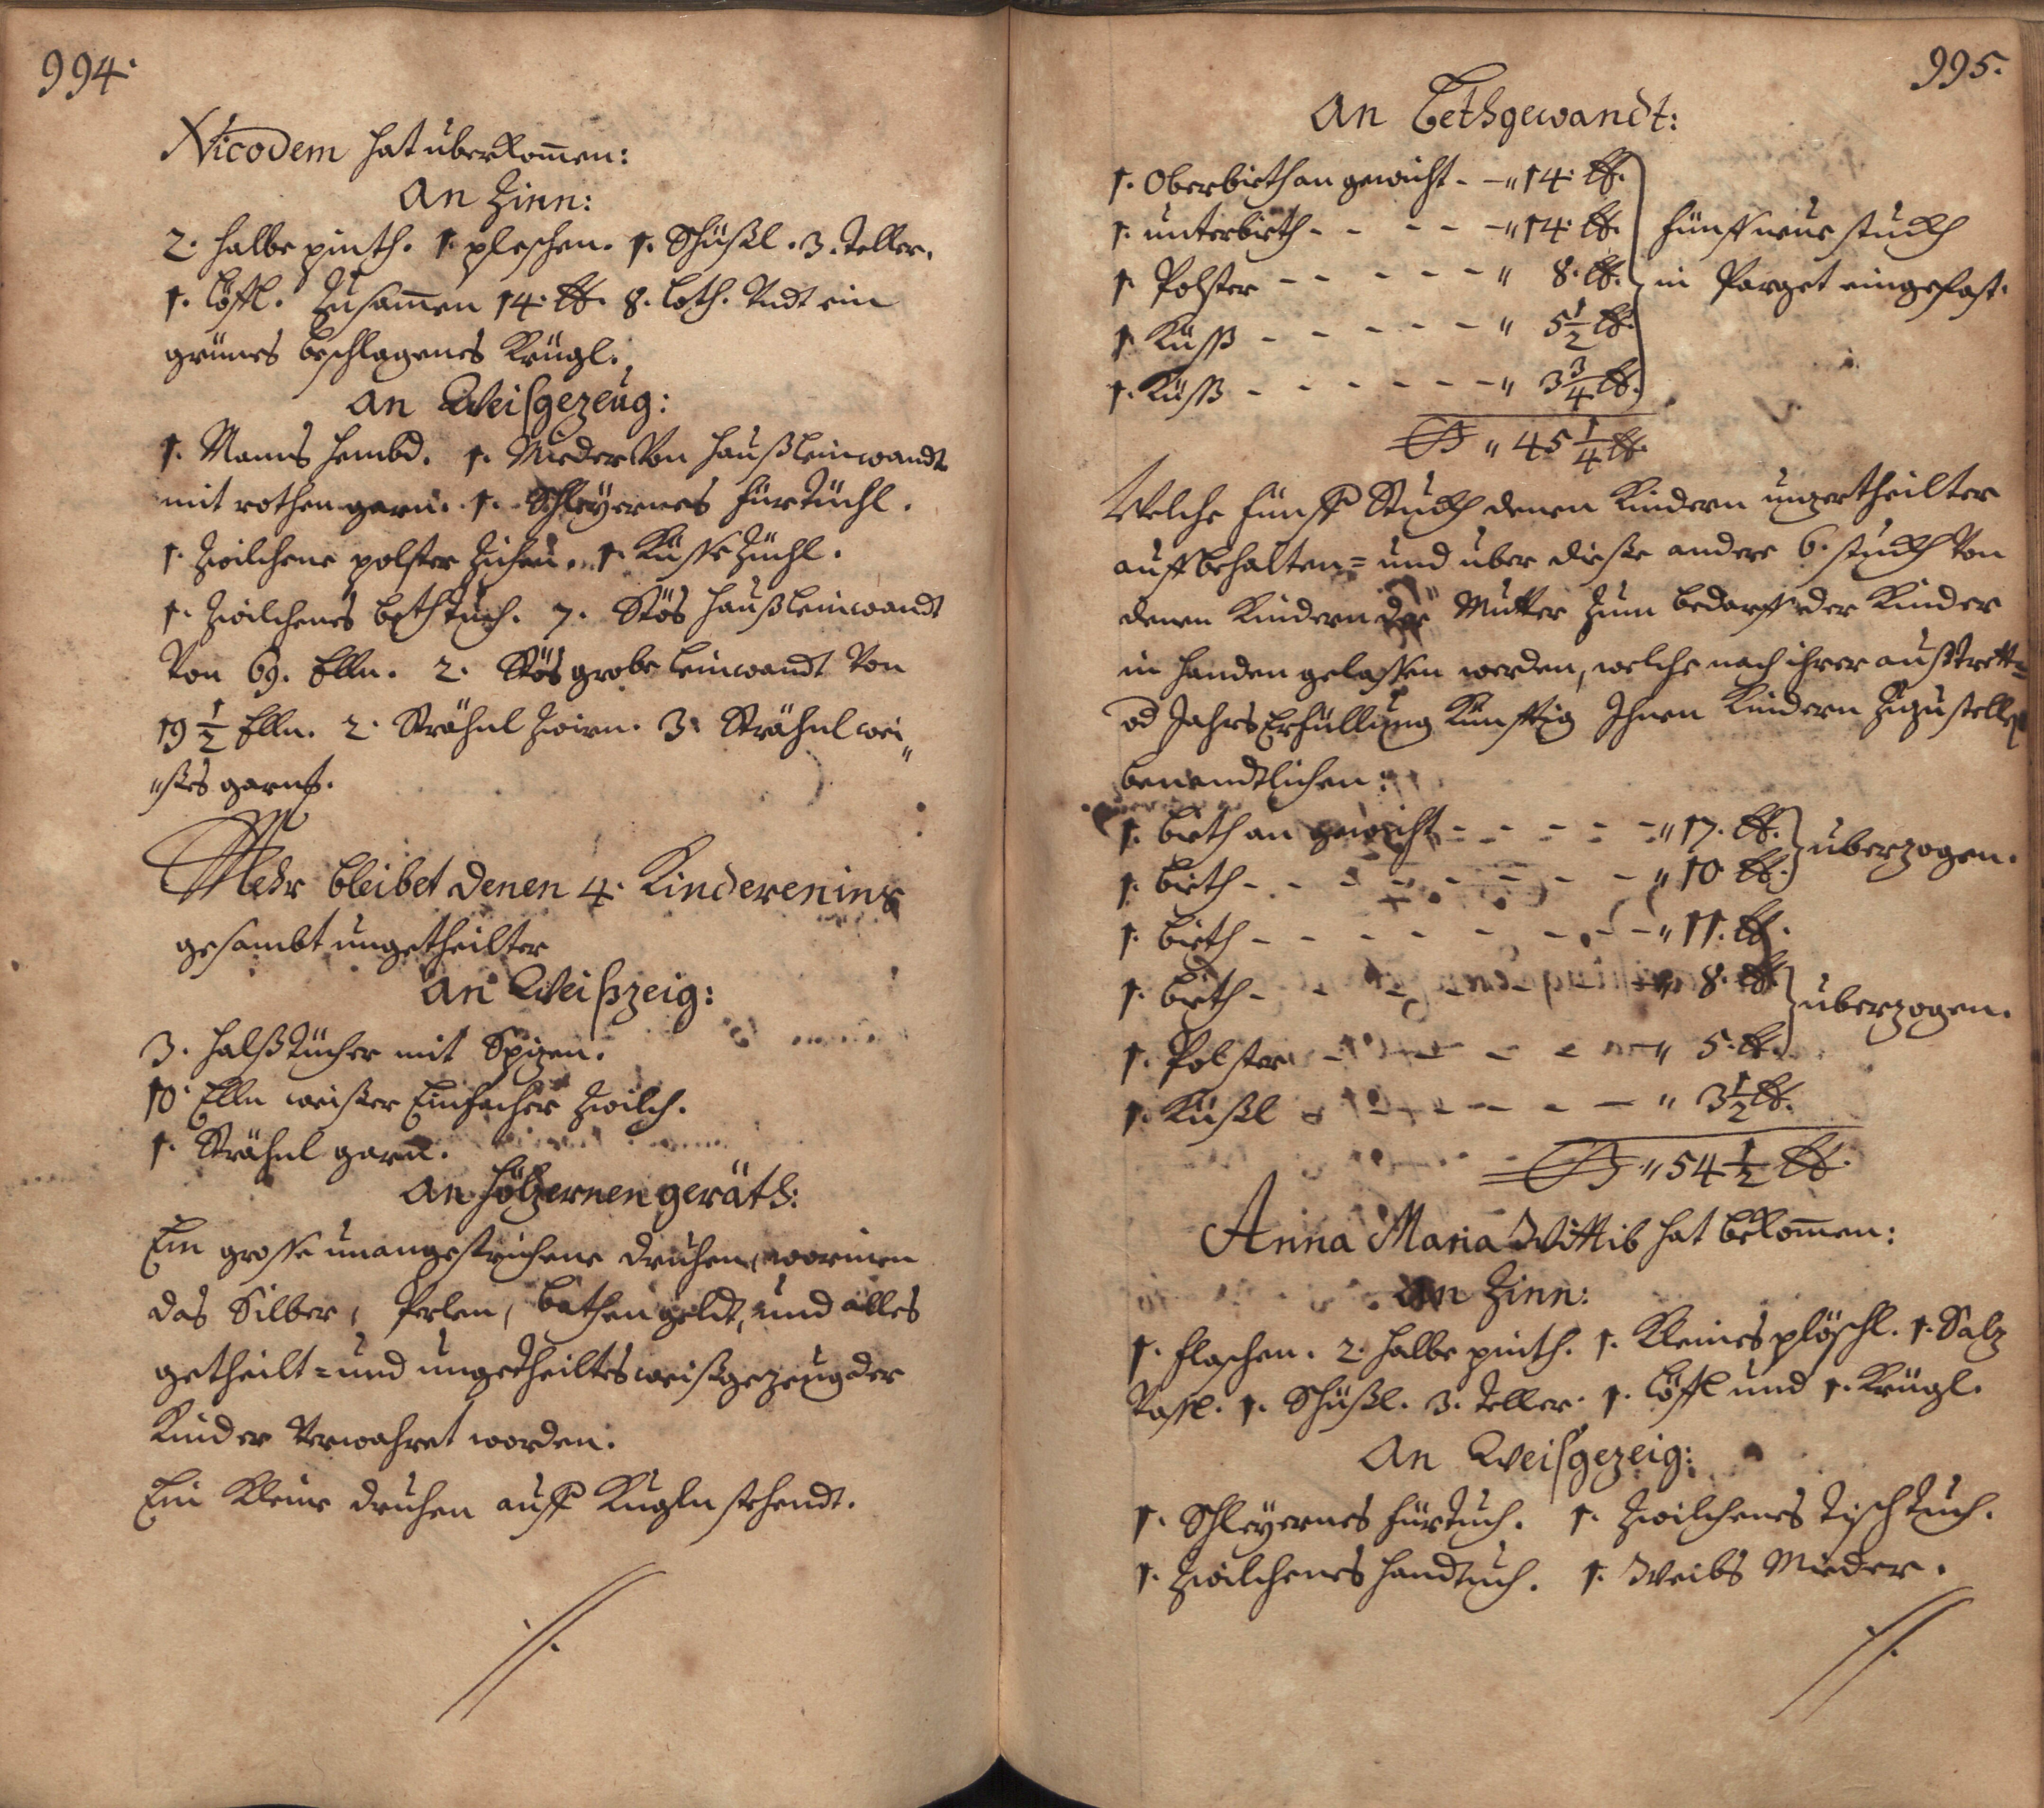 994.
Nicodem hat überkom̄en:
An Zinn:
2. halbe pinth. 1. pleschen. 1. Schüßl. 3. Teller.
1. Löffl. Zusam̄en 14. ℔. 8. Loth. Undt ein
grünes beschlagenes Krügl.
An Weißgezeüg:
1. Manns Hembd. 1. Mieder Von Haußleinwandt
mit rothen garn. 1. Schleÿernes Fürtüchl.
1. Zwilchene polster Zichen. 1. Küsse Züchl.
1. Zwilchenes bethtuch. 7. Stös Haußleinwandt
Von 69. Elln. 2. Stös grobe Leinwandt Von
19 1/2 Elln. 2. Strähnl Zwirn. 3. Strähnl wei„
„ßes garns.
Mehr bleibet denen 4. Kinderen ins
gesambt ungetheilter
An Weißzeig:
3. Halßtücher mit Spizen.
10. Elln weißer Einfacher Zwilch.
1. Strähnl garn.
An Hölzernen geräth:
Ein grosse unangestrichene druhen, worinen
das Silber, Perlen, bathengeldt, und alles
getheilt= und ungetheiltes weißgezeug der
Kinder Verwahret worden.
Ein Kleine druhen auff Kugln stehendt.
995.
An Bethgewandt:
1. Oberbieth an gewicht - - „ 14. ℔.
1. unterbieth - - - - - „ 14. ℔. fünff neue stuckh
1. Polster - - - - - „ 8. ℔. in Parget eingefast.
1. Küss - - - - - „ 5 1/2 ℔.
1. Küss - - - - - - „ 3 3/4 ℔.
„ 45 1/4 ℔.
Welche fünff Stuckh denen Kindern ungertheilter
auffbehalten= und über diese andere 6. stuckh Von
denen Kindern der Mutter Zum bedarff der Kinder
in handen gelassen werden, welche nach ihrer außtrett=
od Jahrs Erfüllung Künfftig Ihnen Kindern Zuzustellen
benendtlichen:
1. bieth an gewicht - - - - - „ 17. ℔. überzogen.
1. bieth - - - - - - - - „ 10 ℔.
1. bieth - - - - - - - - „ 11. ℔.
1. bieth - - - - - - - „ 8. ℔. überzogen.
1. Polster - - - - - „ 5. ℔.
1. Küßl - - - - - - „ 3 1/2 ℔.
„ 54 1/2 ℔.
Anna Maria Wittib hat bekom̄en:
An Zinn:
1. flaschen. 2. halbe pinth. 1. Kleines plöschl. 1. Salz
Vassl. 1. Schüßl. 3. Teller. 1. Löffl und 1. Krügl.
An Weißgezeig:
1. Schleÿernes Fürtuch. 1. Zwilchenes Tischtuch.
1. Zwilchenes Handtuch. 1. Weibs Mieder.